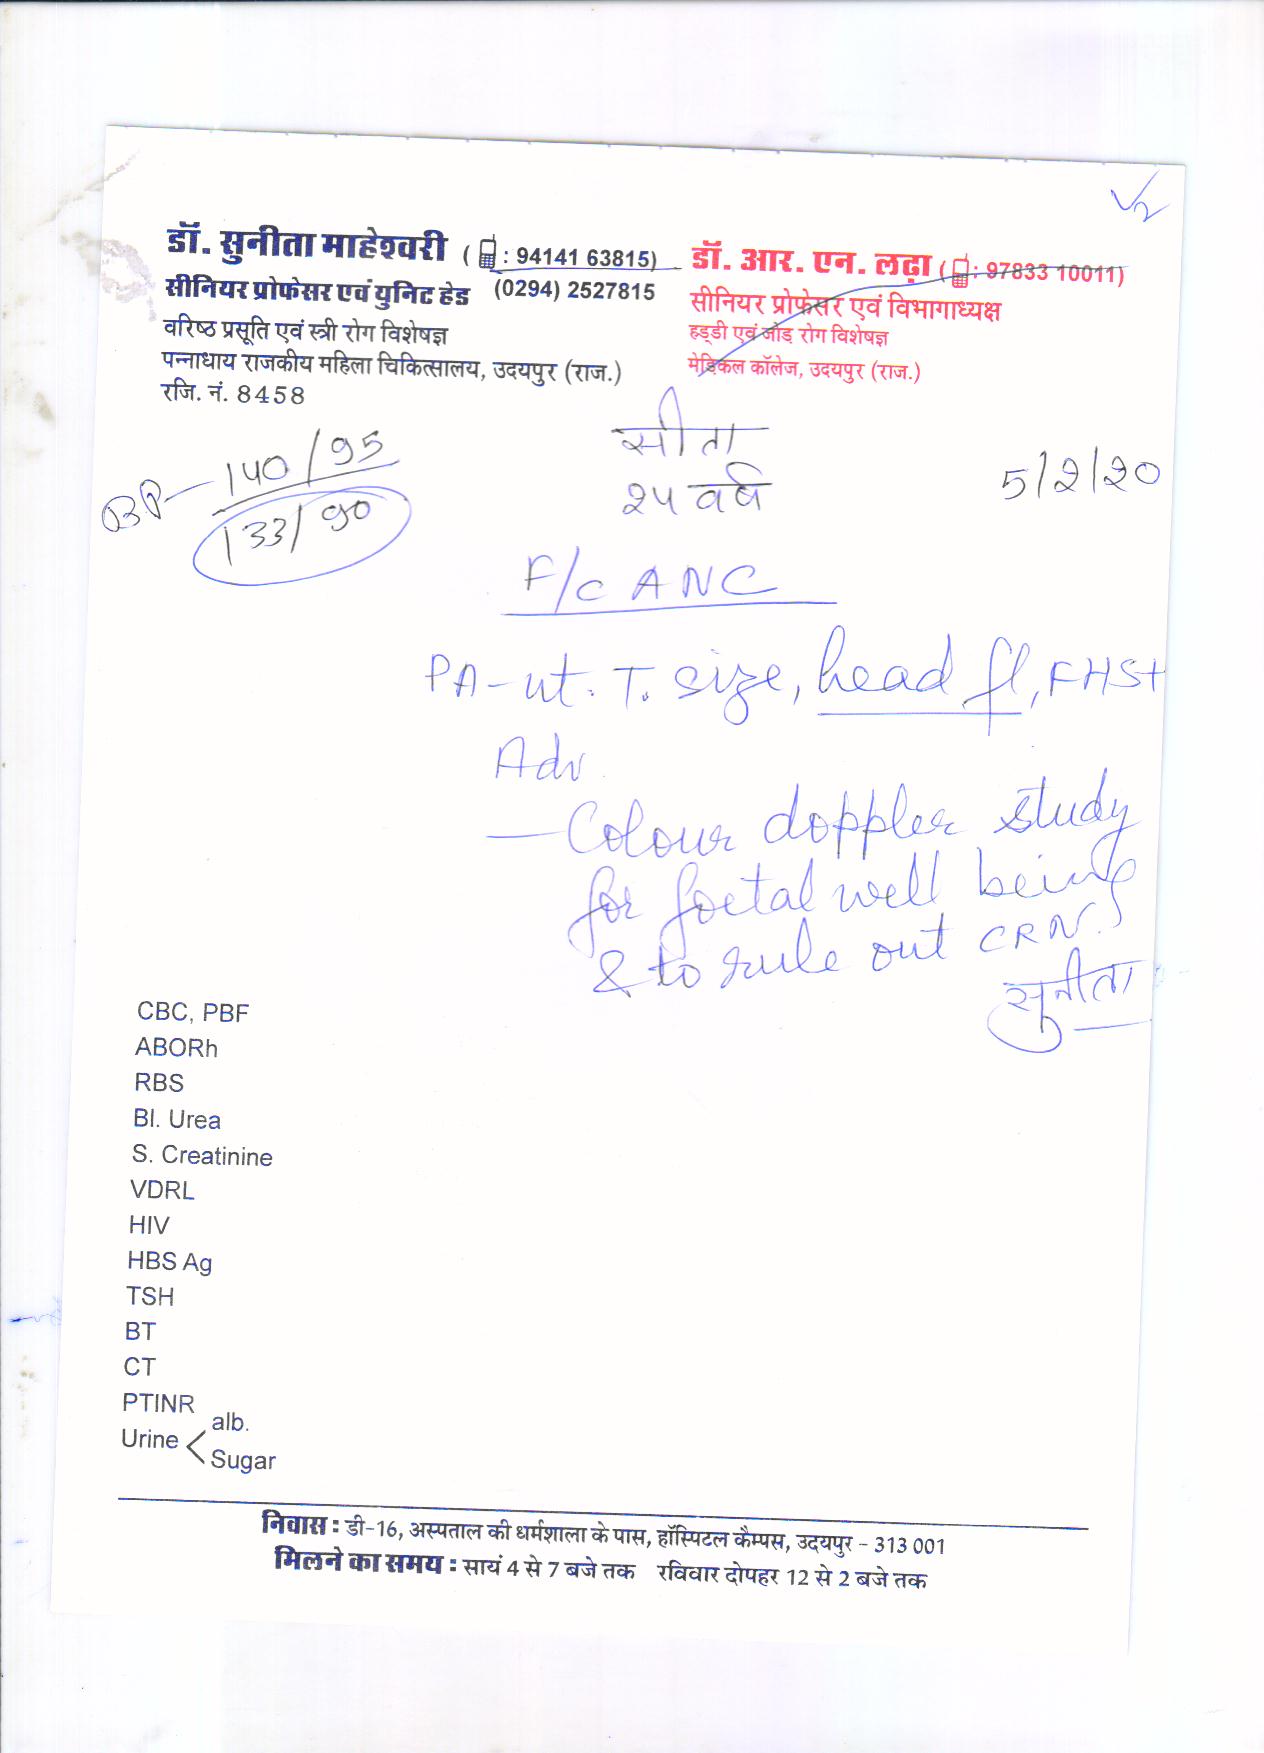 डॉ. सुनीता माहेश्वरी ( : 94141 63815)
सीनियर प्रोफेसर एवं युनिट हेड (0294) 2527815
वरिष्ठ प्रसूति एवं स्त्री रोग विशेषज्ञ
पन्नाधाय राजकीय महिला चिकित्सालय, उदयपुर (राज.)
रजि. नं. 8458
डॉ. आर. एन. लढ़ा ( : 97833 10011)
सीनियर प्रोफेसर एवं विभागाध्यक्ष
हड्डी एवं जोड़ रोग विशेषज्ञ
मेडिकल कॉलेज, उदयपुर (राज.)
BP - 140/95
133/90
सीता
२५ वर्ष
5/2/20
F/c ANC
PA - ut. T. size, head fl, FHS+
Adv
- Colour doppler study
for foetal well being
& to rule out CRN.
सुनीता
CBC, PBF
ABORh
RBS
Bl. Urea
S. Creatinine
VDRL
HIV
HBS Ag
TSH
BT
CT
PTINR
Urine < alb.
Sugar
निवास : डी-16, अस्पताल की धर्मशाला के पास, हॉस्पिटल कैम्पस, उदयपुर - 313 001
मिलने का समय : सायं 4 से 7 बजे तक रविवार दोपहर 12 से 2 बजे तक